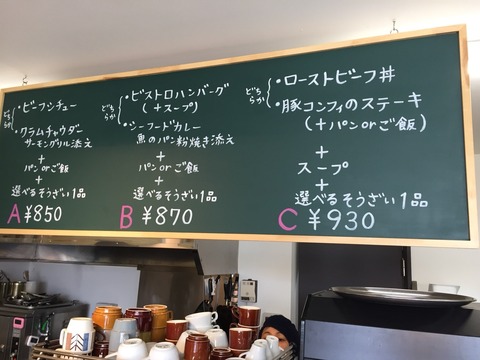 どちらか
・ビーフシチュー
・クラムチャウダー
サーモングリル添え
+
パンorご飯
+
選べるそうざい1品
A ¥850
どちらか
・ビストロハンバーグ
(+スープ)
・シーフードカレー
魚のパン粉焼き添え
+
パンorご飯
+
選べるそうざい1品
B ¥870
どちらか
・ローストビーフ丼
・豚コンフィのステーキ
(+パンorご飯)
+
スープ
+
選べるそうざい1品
C ¥930